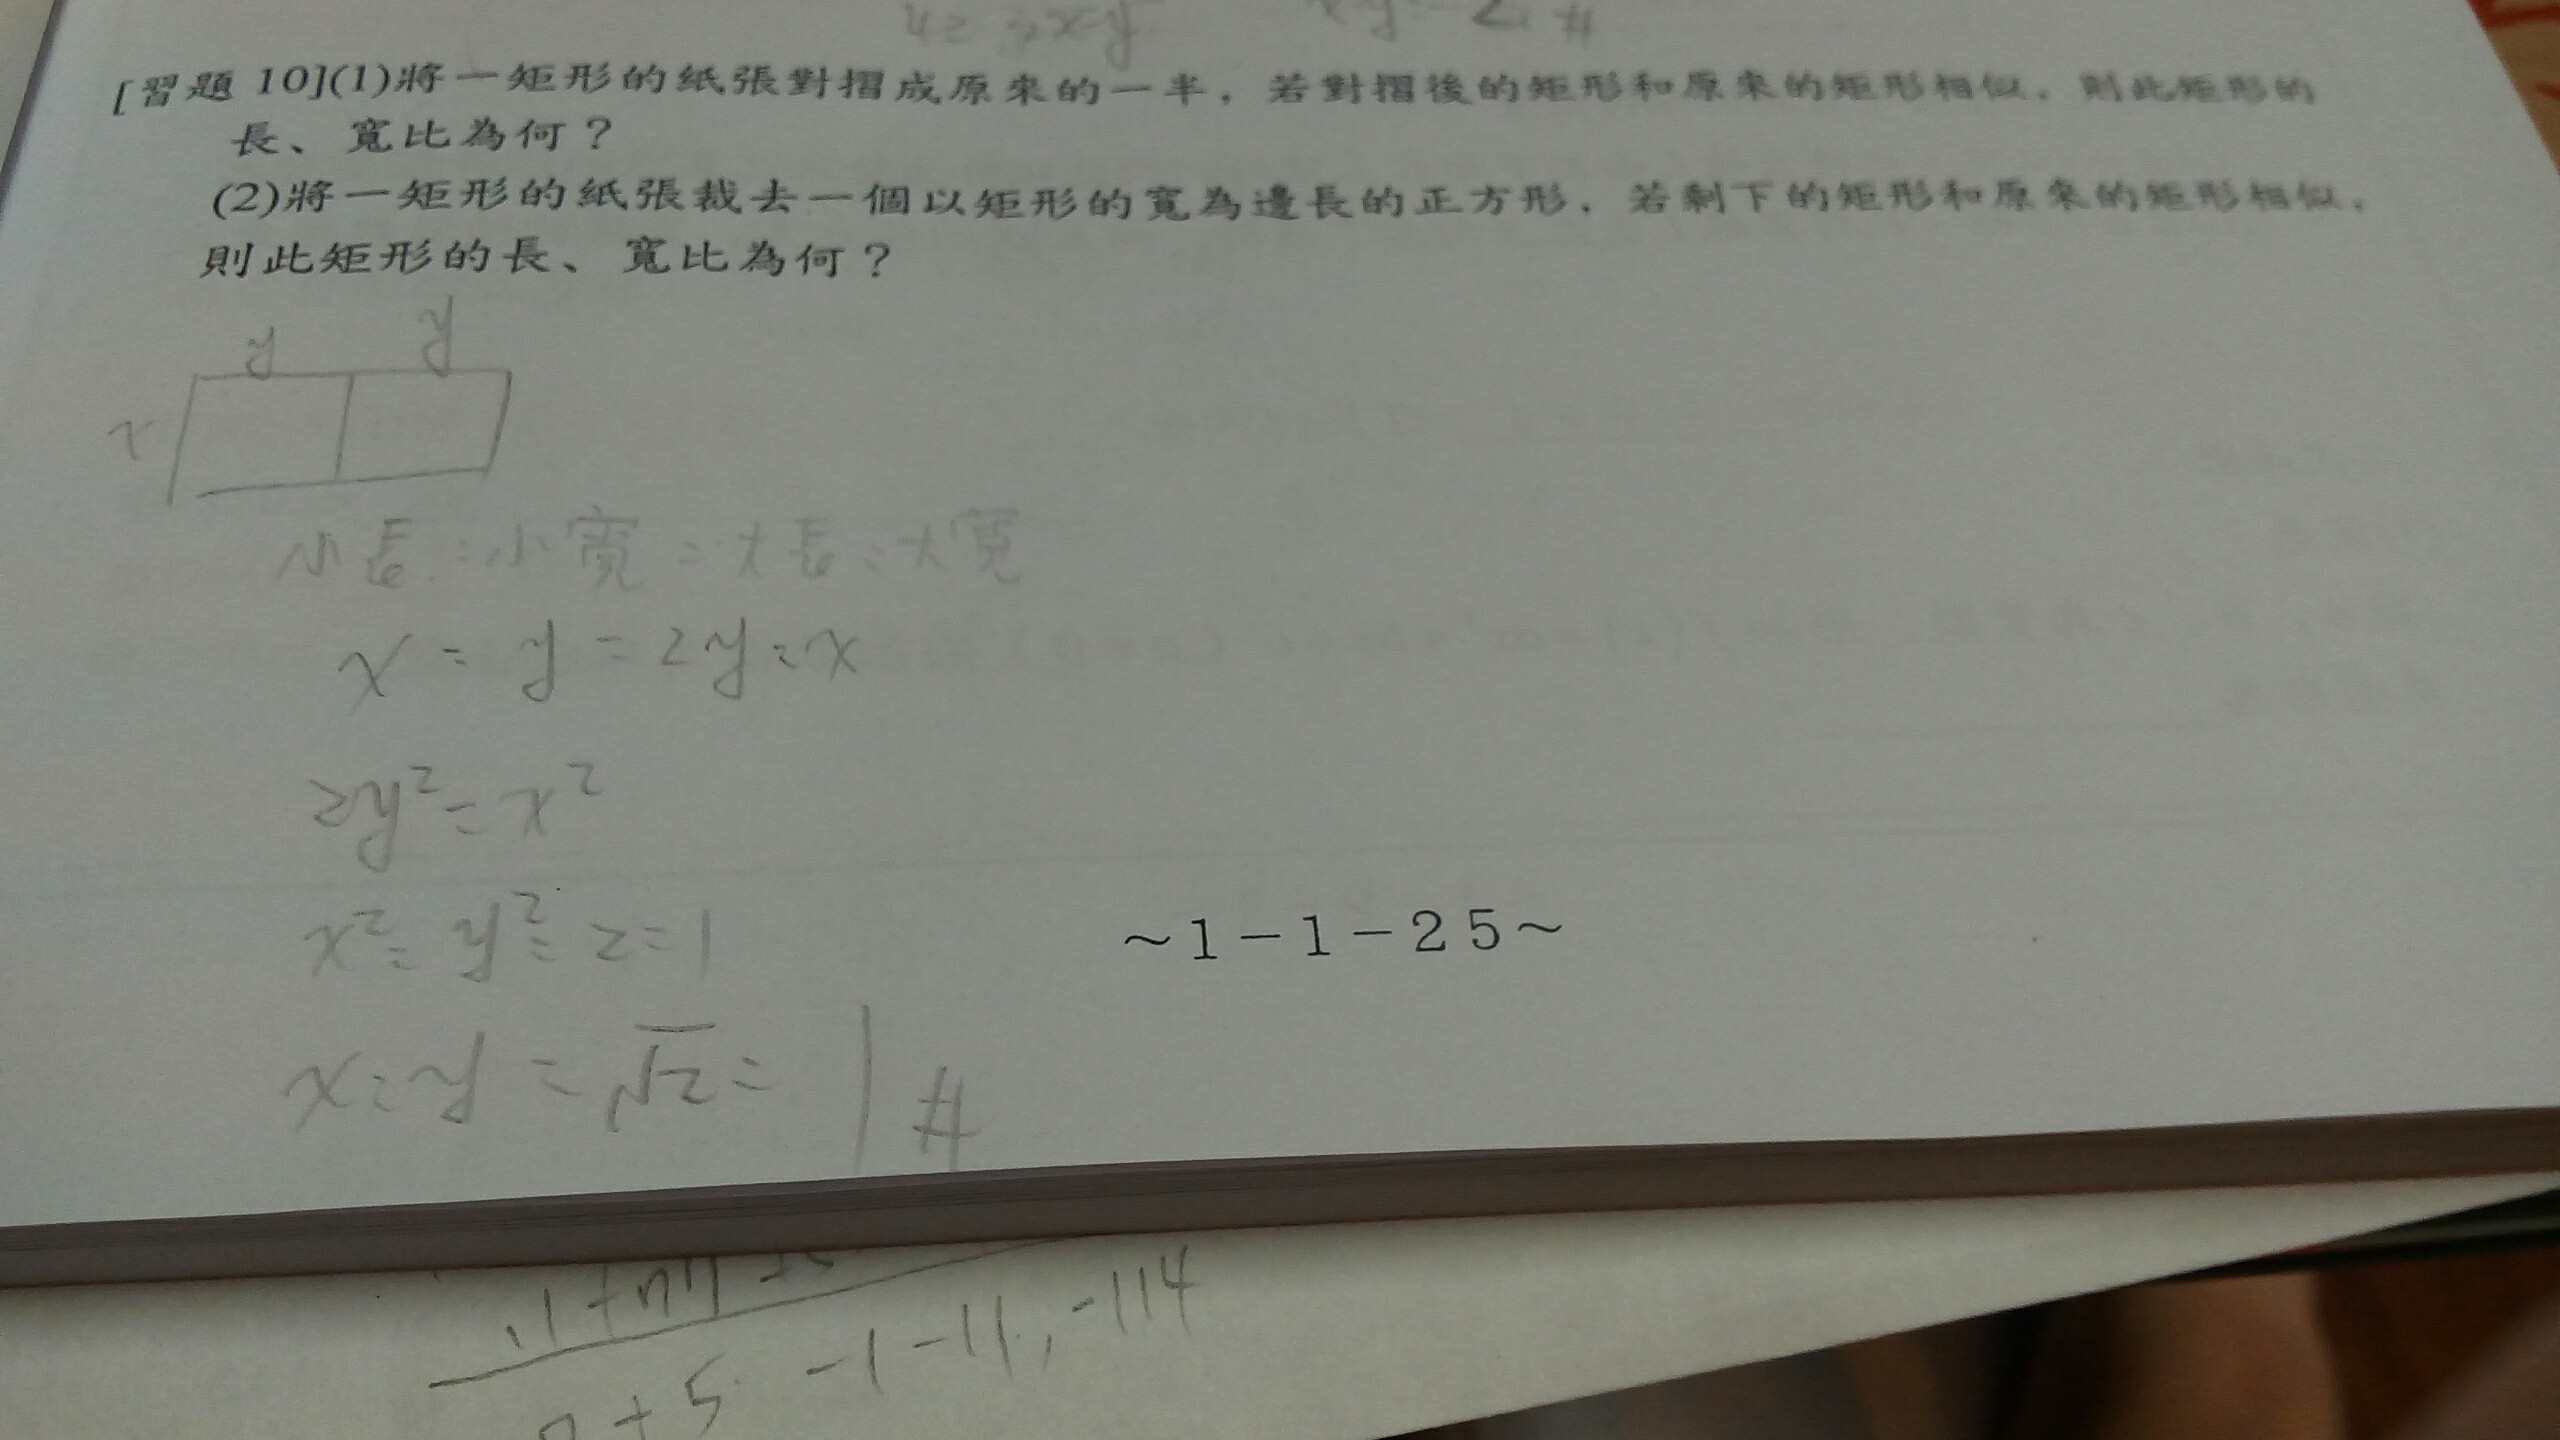 [習題 10](1)將一矩形的紙張對摺成原來的一半，若對摺後的矩形和原來的矩形相似，則此矩形的
長、寬比為何？
(2)將一矩形的紙張裁去一個以矩形的寬為邊長的正方形，若剩下的矩形和原來的矩形相似，
則此矩形的長、寬比為何？
y y
x
小長:小寬=大長:大寬
x:y=2y:x
2y²=x²
x²:y²=2:1
~1-1-25~
x:y=√2:1 #
-1-11,-114
+5